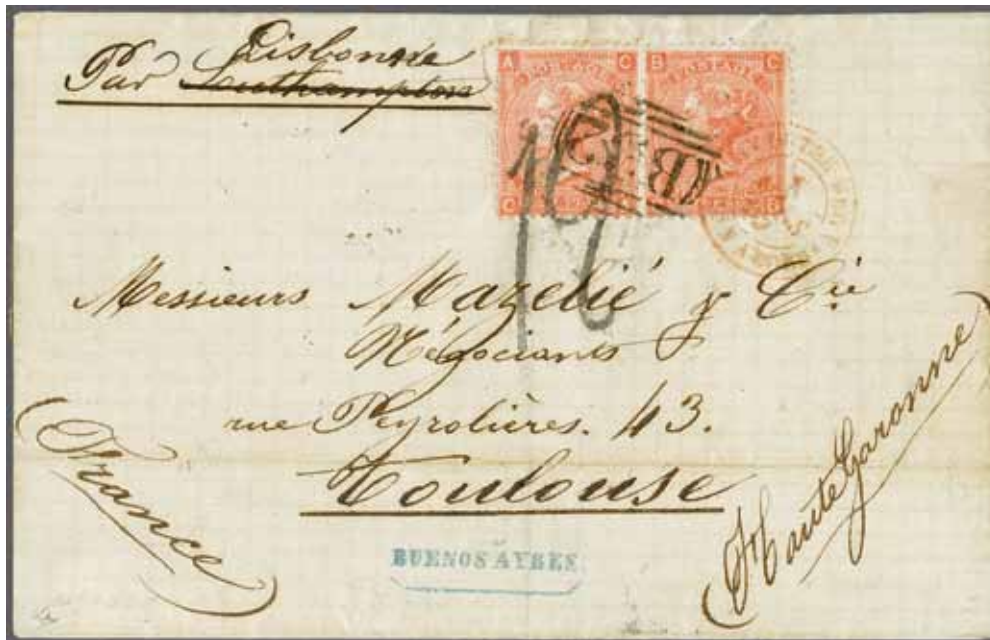 Lisbonne
Par Southampton
A C B C
POSTAGE POSTAGE
B32
C A C B
12
Messieurs Mazelié y Cie
Négociants
rue Peyrolières. 43.
Toulouse
(France)
(Haute Garonne)
BUENOS AYRES.